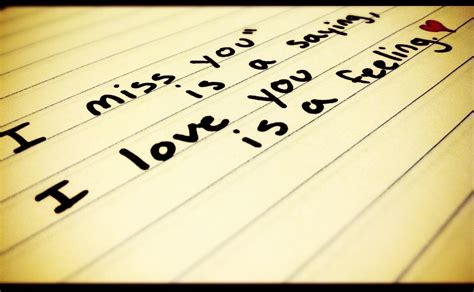 I miss you" is a saying,
I love you is a feeling.